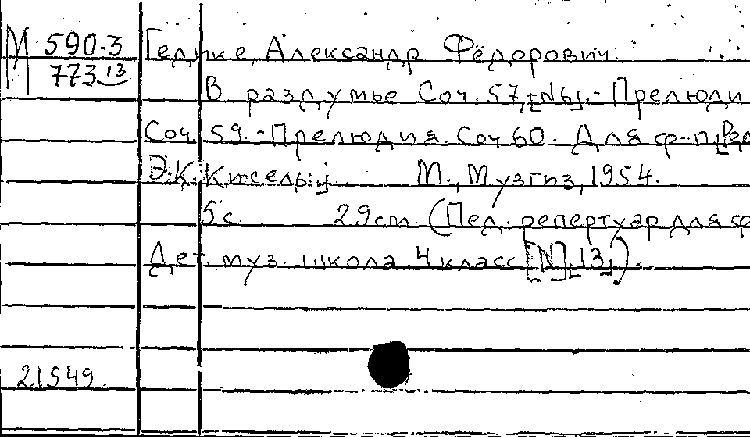 М 590-3
773 13
Гедике, Александр Фёдорович
В раздумье Соч. 57, [№6]. - Прелюди
Соч. 59. - Прелюдия. Соч 60. Для ф-п. [Ред.
Э.К. Киселый М., Музгиз, 1954.
5 с. 29 cm. (Пед. репертуар для ф
Дет. муз. школа 4 класс [№ 13]).
21549